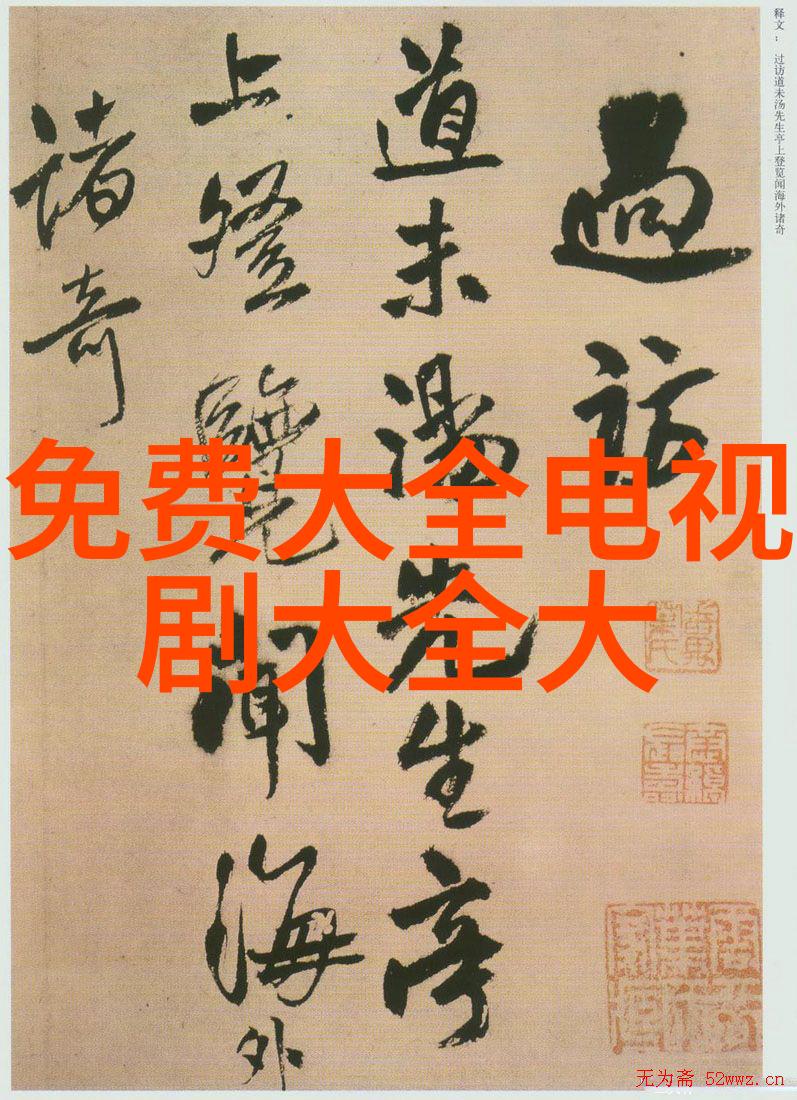 释文： 过访道未汤先生亭上登览闻海外诸奇
過訪
道未湯先生亭
上登覽聞海外
诸奇
免费大全电视
剧大全大
无为斋 52wwz.cn